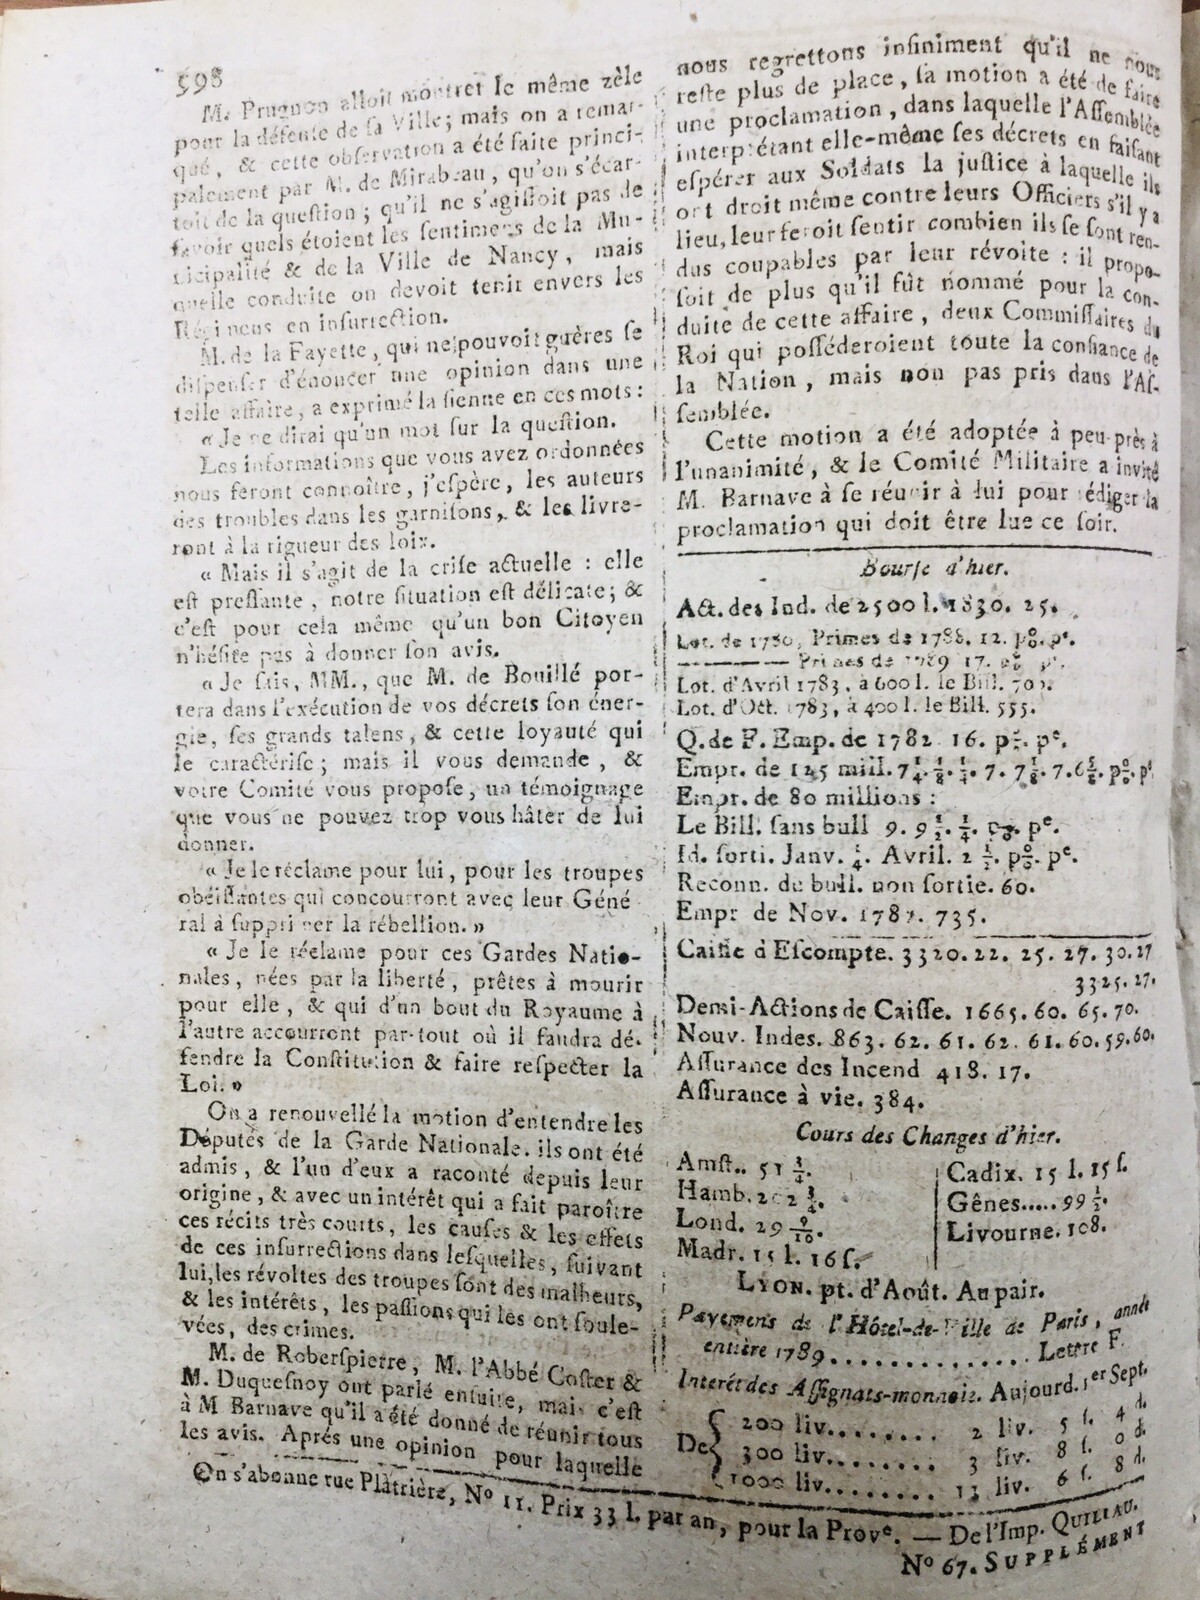 598
M. Prugnon alloit montrer le même zèle
pour la défense de sa Ville; mais on a remar-
qué, & cette observation a été faite princi-
palement par M. de Mirabeau, qu'on s'écar-
toit de la question; qu'il ne s'agissoit pas de
savoir quels étoient les sentimens de la Mu-
nicipalité & de la Ville de Nancy, mais
quelle conduite on devoit tenir envers les
Régimens en insurrection.
M. de la Fayette, qui ne pouvoit guères se
dispenser d'énoncer une opinion dans une
telle affaire, a exprimé la sienne en ces mots:
« Je ne dirai qu'un mot sur la question.
Les informations que vous avez ordonnées
nous feront connoître, j'espère, les auteurs
des troubles dans les garnisons, & les livre-
ront à la rigueur des loix.
« Mais il s'agit de la crise actuelle : elle
est pressante, notre situation est délicate; &
c'est pour cela même qu'un bon Citoyen
n'hésite pas à donner son avis.
« Je sais, MM., que M. de Bouillé por-
tera dans l'exécution de vos décrets son éner-
gie, ses grands talens, & cette loyauté qui
le caractérise; mais il vous demande, &
votre Comité vous propose, un témoignage
que vous ne pouvez trop vous hâter de lui
donner.
« Je le réclame pour lui, pour les troupes
obéissantes qui concourront avec leur Géné
ral à supprimer la rébellion. »
« Je le réclame pour ces Gardes Natio-
nales, nées par la liberté, prêtes à mourir
pour elle, & qui d'un bout du Royaume à
l'autre accourront par-tout où il faudra dé-
fendre la Constitution & faire respecter la
Loi. »
On a renouvellé la motion d'entendre les
Députés de la Garde Nationale. ils ont été
admis, & l'un d'eux a raconté depuis leur
origine, & avec un intérêt qui a fait paroître
ces récits très courts, les causes & les effets
de ces insurrections dans lesquelles, suivant
lui, les révoltes des troupes sont des malheurs,
& les intérêts, les passions qui les ont soule-
vées, des crimes.
M. de Roberspierre, M. l'Abbé Coster &
M. Duquesnoy ont parlé ensuite, mais c'est
à M Barnave qu'il a été donné de réunir tous
les avis. Aprés une opinion pour laquelle
nous regrettons infiniment qu'il ne nous
reste plus de place, sa motion a été de faire
une proclamation, dans laquelle l'Assemblée
interprétant elle-même ses décrets en faisant
espérer aux Soldats la justice à laquelle ils
ont droit même contre leurs Officiers s'il y a
lieu, leur feroit sentir combien ils se sont ren-
dus coupables par leur révoite : il propo-
soit de plus qu'il fût nommé pour la con-
duite de cette affaire, deux Commissaires du
Roi qui posséderoient toute la confiance de
la Nation, mais non pas pris dans l'As-
semblée.
Cette motion a été adoptée à peu-près à
l'unanimité, & le Comité Militaire a invité
M. Barnave à se réunir à lui pour rédiger la
proclamation qui doit être lue ce soir.
Bourse d'hier.
Act. des Ind. de 2500 l. 1830. 25.
Lot. de 1780, Primes de 1788. 12. p%. pe.
———— Primes de 1789 17. p% pe.
Lot. d'Avril 1783, à 600 l. le Bill. 705.
Lot. d'Oct. 1783, à 400 l. le Bill. 555.
Q. de F. Emp. de 1782. 16. p%. pe.
Empr. de 125 mill. 7 1/4. 1/8. 1/4. 7. 7 1/8. 7. 6 5/8. p%. pe
Empr. de 80 millions :
Le Bill. sans bull 9. 9 1/2. 1/4. p%. pe.
Id. sorti. Janv. 1/4. Avril. 2 1/2. p%. pe.
Reconn. de bull. non sortie. 60.
Empr de Nov. 1787. 735.
Caisse d'Escompte. 3320. 22. 25. 27. 30. 27
3325. 27.
Demi-Actions de Caisse. 1665. 60. 65. 70.
Nouv. Indes. 863. 62. 61. 62. 61. 60. 59. 60.
Assurance des Incend 418. 17.
Assurance à vie. 384.
Cours des Changes d'hier.
Amst.. 51 3/4.
Hamb. 202 3/4.
Lond. 29 9/10.
Madr. 15 l. 16 s.
Cadix. 15 l. 15 s.
Gênes..... 99 1/2.
Livourne. 108.
LYON. pt. d'Août. Au pair.
Payemens de l'Hôtel-de-Ville de Paris, année
entière 1789............... Lettre F.
Interêt des Assignats-monnoie. Aujourd. 1er Sept.
De { 200 liv......... 2 liv. 5 s. 4 d.
300 liv......... 3 liv. 8 s. 0 d.
1000 liv........ 11 liv. 6 s. 8 d.
On s'abonne rue Plâtrière, N° 11. Prix 33 l. par an, pour la Prove. — De l'Imp. QUILLAU.
N° 67. SUPPLÉMENT